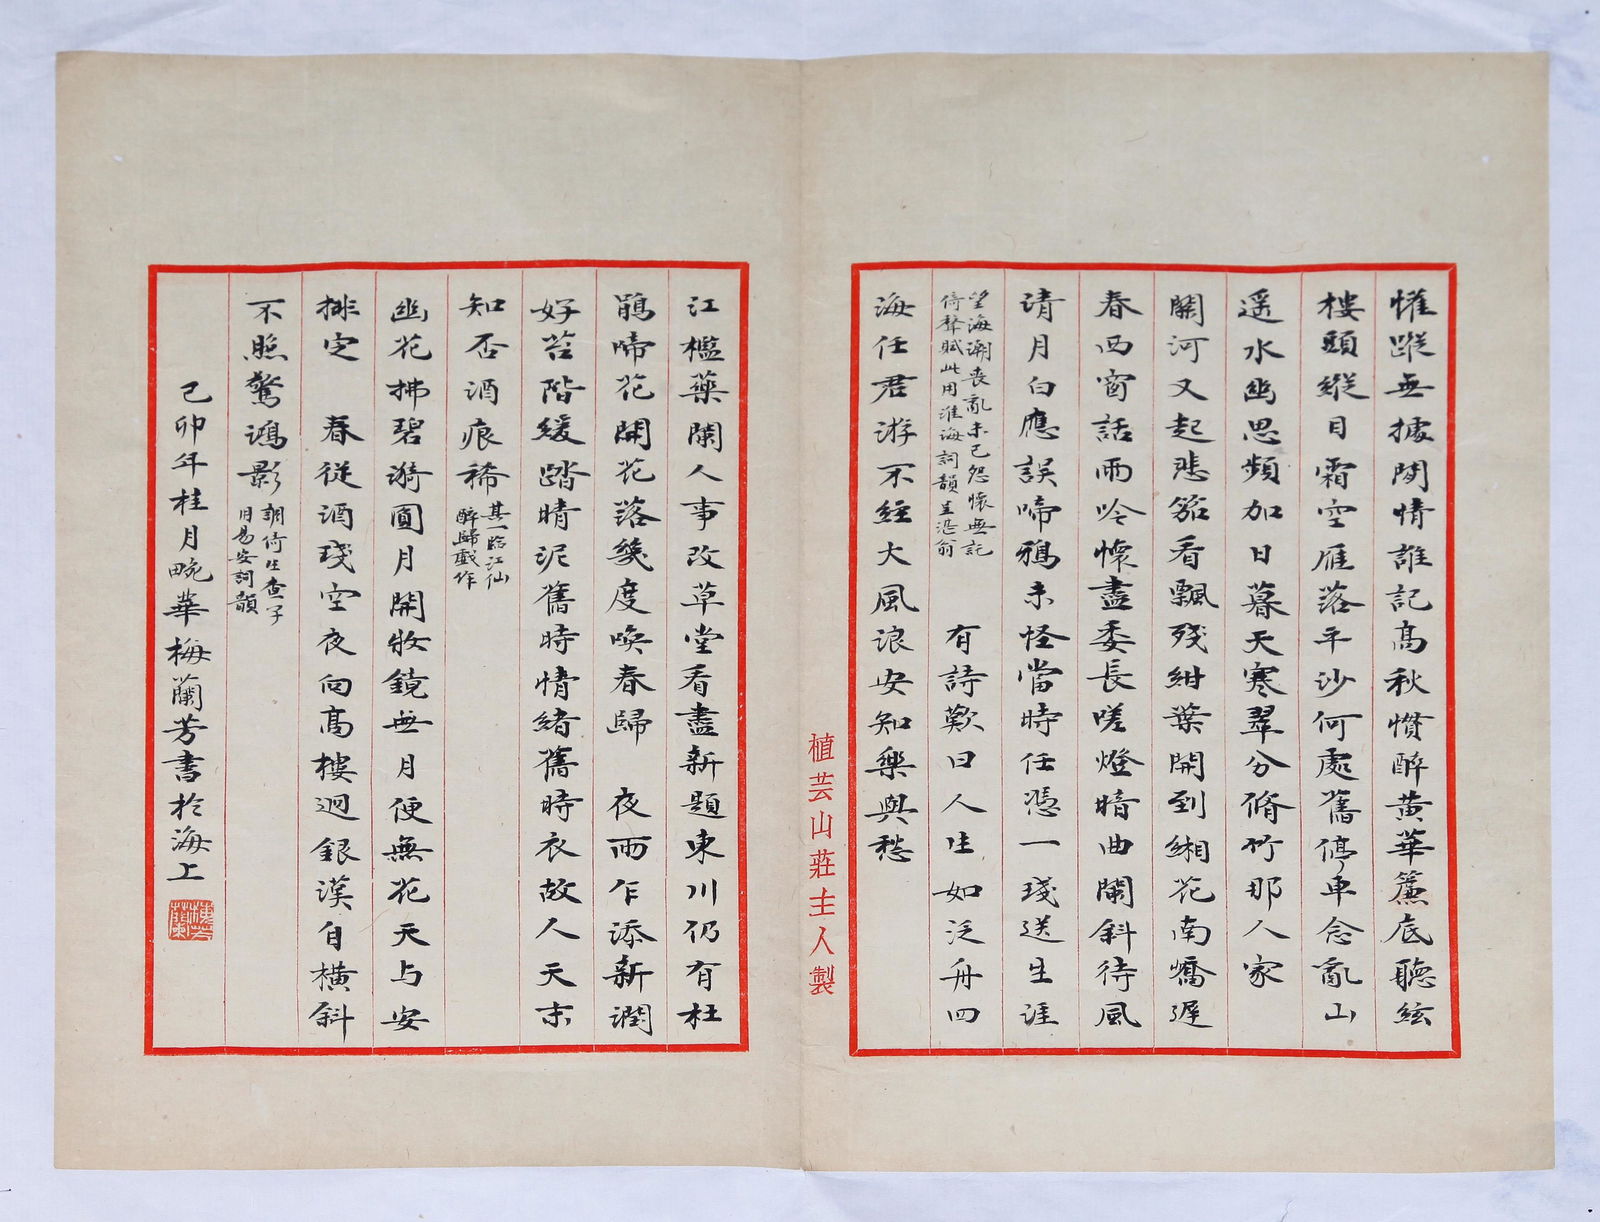 懽蹤無據閑情誰記高秋慣醉黃華簾底聽絃
樓頭縱目霜空雁落平沙何處舊停車念亂山
遥水幽思頻加日暮天寒翠分脩竹那人家
關河又起悲笳看飄殘紺葉開到緗花南嶠遲
春西窗話雨吟懷盡委長嗟燈暗曲闌斜待風
清月白應誤啼鴉未怪當時任憑一琖送生涯
望海潮喪亂未已怨懷無記
倚聲賦此用淮海詞韻
有詩歎曰人生如泛舟四
海任君游不經大風浪安知樂與愁
植芸山莊主人製
江檻藥闌人事改草堂看盡新題東川仍有杜
鵑啼花開花落幾度喚春歸 夜雨乍添新澗
好苔階緩踏晴泥舊時情緒舊時衣故人天末
知否酒痕稀
其一臨江仙
醉歸戲作
幽花拂碧漪圓月開妝鏡無月便無花天与安
排定 春從酒琖空夜向高樓迥銀漢自橫斜
不照驚鴻影
調倚生查子
用易安詞韻
己卯年桂月畹華梅蘭芳書於海上